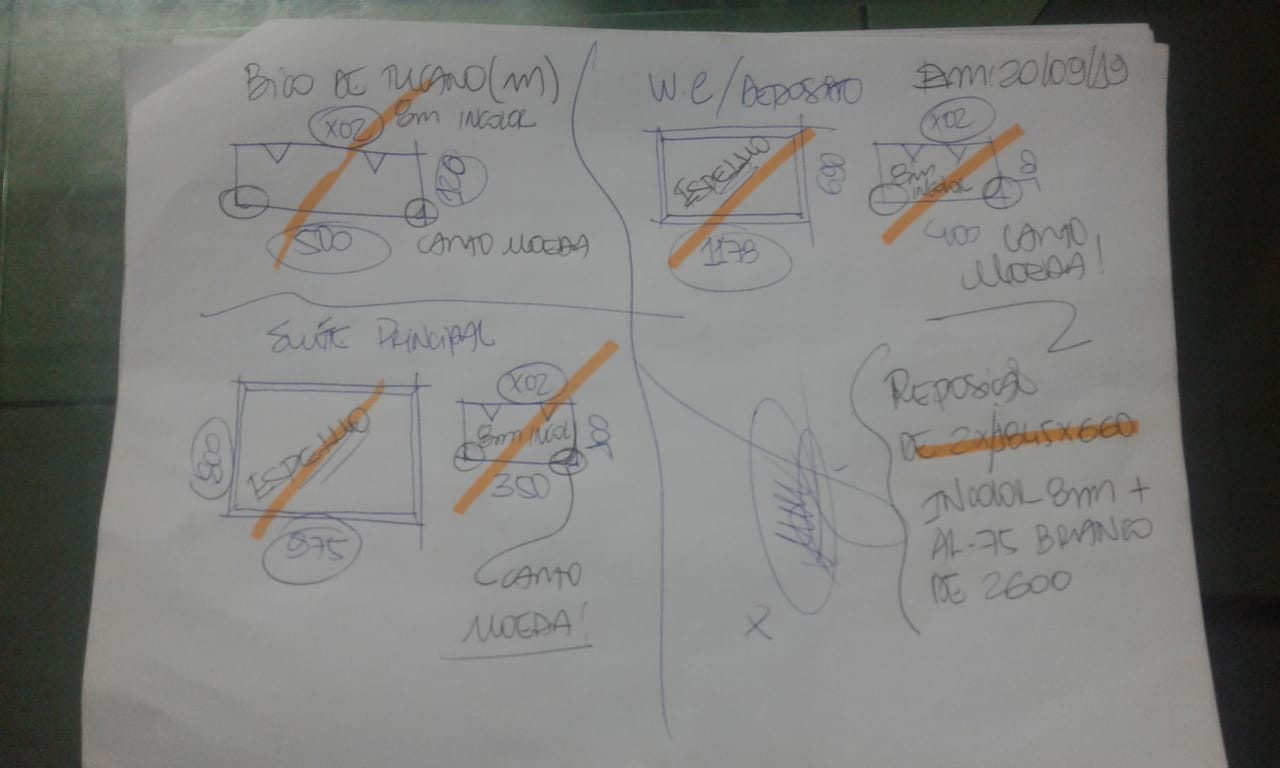 BICO DE TUCANO (m)
X02 8m INCOLOR
120
500
CANTO MOEDA
W.C/DEPOSITO
Em: 20/09/19
ESPELHO
690
1178
X02
8mm
INCOLOR
400 CANTO
MOEDA!
SUÍTE PRINCIPAL
ESPELHO
800
875
X02
8mm INCOL
100
350
CANTO
MOEDA!
REPOSIÇÃO
DE 2X/1845X660
INCOLOR 8mm +
AL-75 BRANCO
DE 2600
X